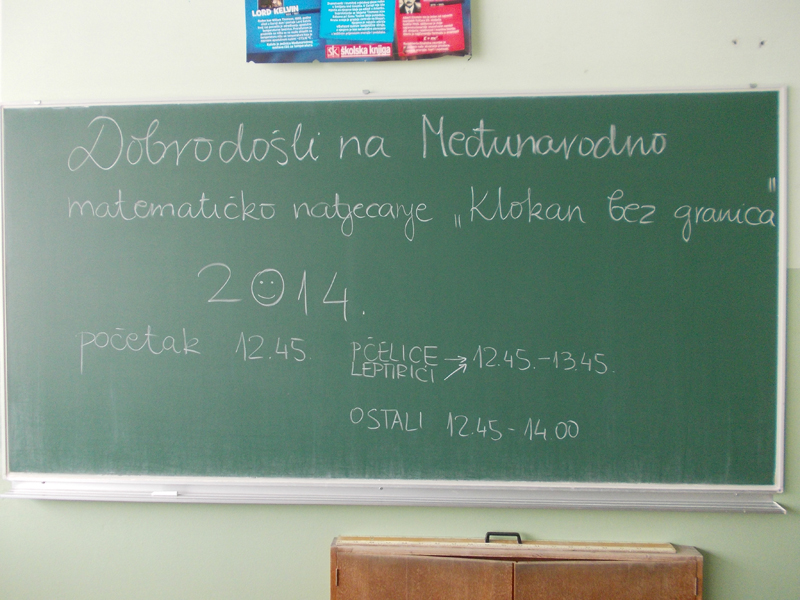 LORD KELVIN
školska knjiga
Dobrodošli na Međunarodno
matematičko natjecanje „Klokan bez granica"
2014.
početak 12.45.
PČELICE → 12.45.-13.45.
LEPTIRIĆI
OSTALI 12.45-14.00